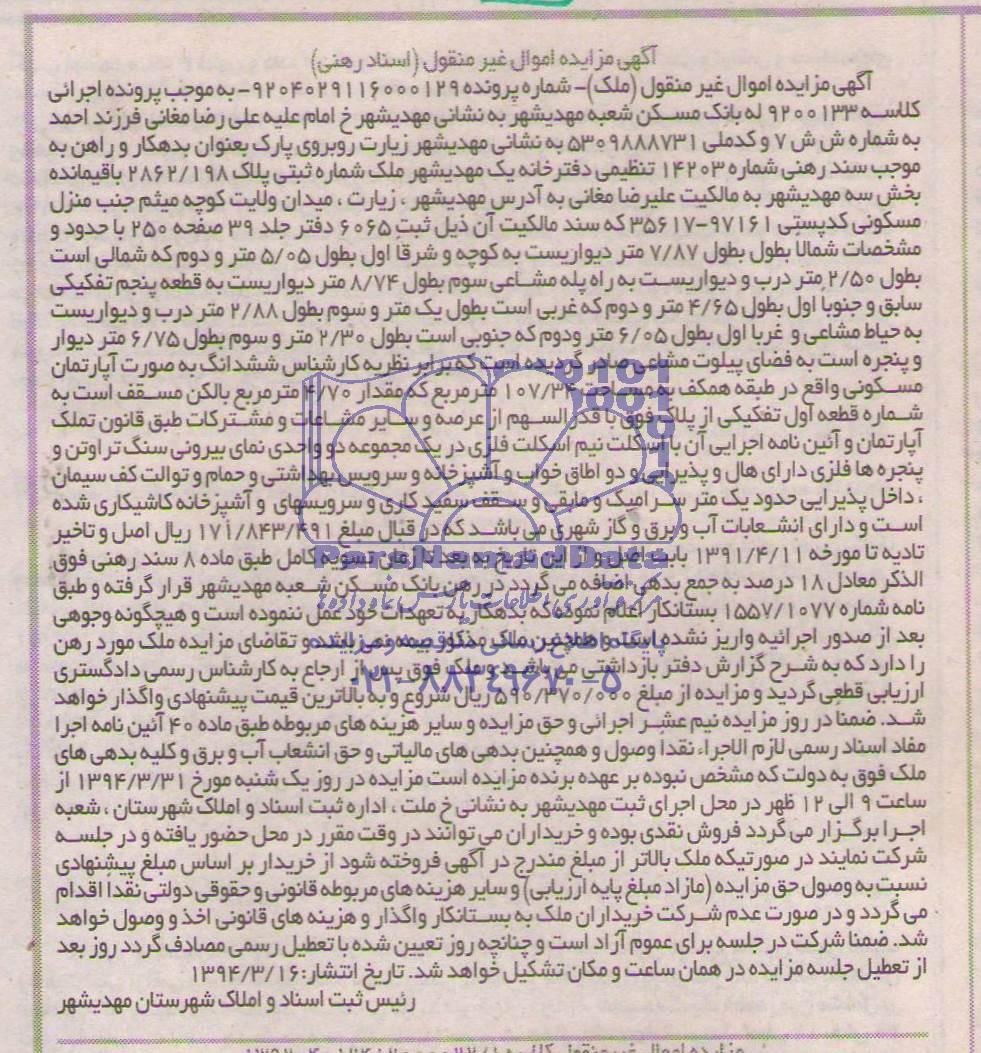 آگهی مزایده اموال غیر منقول (اسناد رهنی)
آگهی مزایده اموال غیر منقول (ملک)- شماره پرونده ۹۲۰۴۰۲۹۱۱۶۰۰۰۱۲۹- به موجب پرونده اجرائی
کلاسه ۹۲۰۰۱۳۳ له بانک مسکن شعبه مهدیشهر به نشانی مهدیشهر خ امام علیه علی رضا مغانی فرزند احمد
به شماره ش ش ۷ و کدملی ۵۳۰۹۸۸۸۷۳۱ به نشانی مهدیشهر زیارت روبروی پارک بعنوان بدهکار و راهن به
موجب سند رهنی شماره ۱۴۲۰۳ تنظیمی دفترخانه یک مهدیشهر ملک شماره ثبتی پلاک ۲۸۶۲/۱۹۸ باقیمانده
بخش سه مهدیشهر به مالکیت علیرضا مغانی به آدرس مهدیشهر ، زیارت ، میدان ولایت کوچه میثم جنب منزل
مسکونی کدپستی ۹۷۱۶۱-۳۵۶۱۷ که سند مالکیت آن ذیل ثبت ۶۰۶۵ دفتر جلد ۳۹ صفحه ۲۵۰ با حدود و
مشخصات شمالا بطول بطول ۷/۸۷ متر دیواریست به کوچه و شرقا اول بطول ۵/۰۵ متر و دوم که شمالی است
بطول ۲/۵۰ متر درب و دیواریست به راه پله مشاعی سوم بطول ۸/۷۴ متر دیواریست به قطعه پنجم تفکیکی
سابق و جنوبا اول بطول ۴/۶۵ متر و دوم که غربی است بطول یک متر و سوم بطول ۲/۸۸ متر درب و دیواریست
به حیاط مشاعی و غربا اول بطول ۶/۰۵ متر ودوم که جنوبی است بطول ۲/۳۰ متر و سوم بطول ۶/۷۵ متر دیوار
و پنجره است به فضای پیلوت مشاعی صادر گردیده است که برابر نظریه کارشناس ششدانگ به صورت آپارتمان
مسکونی واقع در طبقه همکف به مساحت ۱۰۷/۳۴ مترمربع که مقدار ۴/۷۰ مترمربع بالکن مسقف است به
شماره قطعه اول تفکیکی از پلاک فوق با قدرالسهم از عرصه و سایر مشاعات و مشترکات طبق قانون تملک
آپارتمان و آئین نامه اجرایی آن با اسکلت نیم اسکلت فلزی در یک مجموعه دو واحدی نمای بیرونی سنگ تراوتن و
پنجره ها فلزی دارای هال و پذیرایی و دو اطاق خواب و آشپزخانه و سرویس بهداشتی و حمام و توالت کف سیمان
، داخل پذیرایی حدود یک متر سرامیک و مابقی و سقف سفید کاری و سرویسهای و آشپزخانه کاشیکاری شده
است و دارای انشعابات آب و برق و گاز شهری می باشد که در قبال مبلغ ۱۷۱/۸۴۳/۴۹۱ ریال اصل و تاخیر
تادیه تا مورخه ۱۳۹۱/۴/۱۱ بابت اصل و از این تاریخ به بعد تا زمان تسویه کامل طبق ماده ۸ سند رهنی فوق
الذکر معادل ۱۸ درصد به جمع بدهی اضافه می گردد در رهن بانک مسکن شعبه مهدیشهر قرار گرفته و طبق
نامه شماره ۱۵۵۷/۱۰۷۷ بستانکار اعلام نموده که بدهکار به تعهدات خود عمل ننموده است و هیچگونه وجوهی
بعد از صدور اجرائیه واریز نشده است و همچنین ملک مذکور بیمه نمی باشد و تقاضای مزایده ملک مورد رهن
را دارد که به شرح گزارش دفتر بازداشتی می باشد و ملک فوق پس از ارجاع به کارشناس رسمی دادگستری
ارزیابی قطعی گردید و مزایده از مبلغ ۵۹۰/۳۷۰/۰۰۰ ریال شروع و به بالاترین قیمت پیشنهادی واگذار خواهد
شد. ضمنا در روز مزایده نیم عشر اجرائی و حق مزایده و سایر هزینه های مربوطه طبق ماده ۴۰ آئین نامه اجرا
مفاد اسناد رسمی لازم الاجراء نقدا وصول و همچنین بدهی های مالیاتی و حق انشعاب آب و برق و کلیه بدهی های
ملک فوق به دولت که مشخص نبوده بر عهده برنده مزایده است مزایده در روز یک شنبه مورخ ۱۳۹۴/۳/۳۱ از
ساعت ۹ الی ۱۲ ظهر در محل اجرای ثبت مهدیشهر به نشانی خ ملت ، اداره ثبت اسناد و املاک شهرستان ، شعبه
اجرا برگزار می گردد فروش نقدی بوده و خریداران می توانند در وقت مقرر در محل حضور یافته و در جلسه
شرکت نمایند در صورتیکه ملک بالاتر از مبلغ مندرج در آگهی فروخته شود از خریدار بر اساس مبلغ پیشنهادی
نسبت به وصول حق مزایده (مازاد مبلغ پایه ارزیابی) و سایر هزینه های مربوطه قانونی و حقوقی دولتی نقدا اقدام
می گردد و در صورت عدم شرکت خریداران ملک به بستانکار واگذار و هزینه های قانونی اخذ و وصول خواهد
شد. ضمنا شرکت در جلسه برای عموم آزاد است و چنانچه روز تعیین شده با تعطیل رسمی مصادف گردد روز بعد
از تعطیل جلسه مزایده در همان ساعت و مکان تشکیل خواهد شد. تاریخ انتشار: ۱۳۹۴/۳/۱۶
رئیس ثبت اسناد و املاک شهرستان مهدیشهر
ParsNamadData
پایگاه اطلاع رسانی مناقصه و مزایده
۰۲۱-۸۸۳۴۹۶۷۰-۵